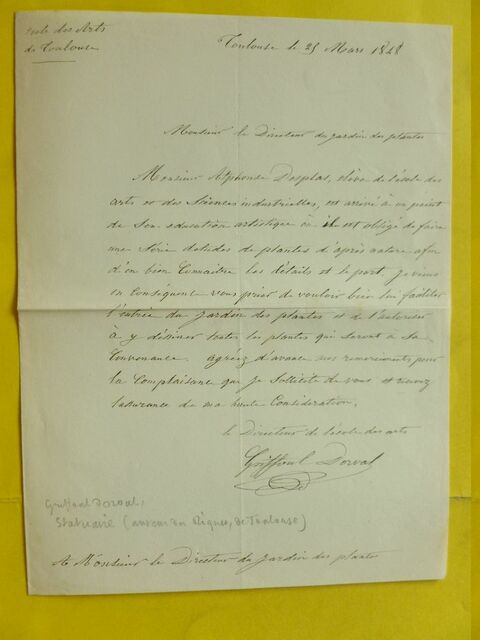 école des Arts
de Toulouse
Toulouse le 25 Mars 1848
Monsieur le Directeur du jardin des plantes
Monsieur Alphonse Desplas, élève de l'école des
arts et des Sciences industrielles, est arrivé à un point
de Son éducation artistique où il est obligé de faire
une Série d'études de plantes d'après nature afin
d'en bien Connaitre les détails et le port, je viens
en Conséquence vous prier de vouloir bien lui faciliter
l'entrée du jardin des plantes et de l'autoriser
à y dessiner toutes les plantes qui seront à Sa
Convenance. agréez d'avance mes remerciments pour
la Complaisance que je Sollicite de vous et recevez
l'assurance de ma haute Considération.
le Directeur de l'école des arts
Griffoul Dorval
Griffoul Dorval,
Statuaire (de Toulouse)
A Monsieur le Directeur du Jardin des plantes